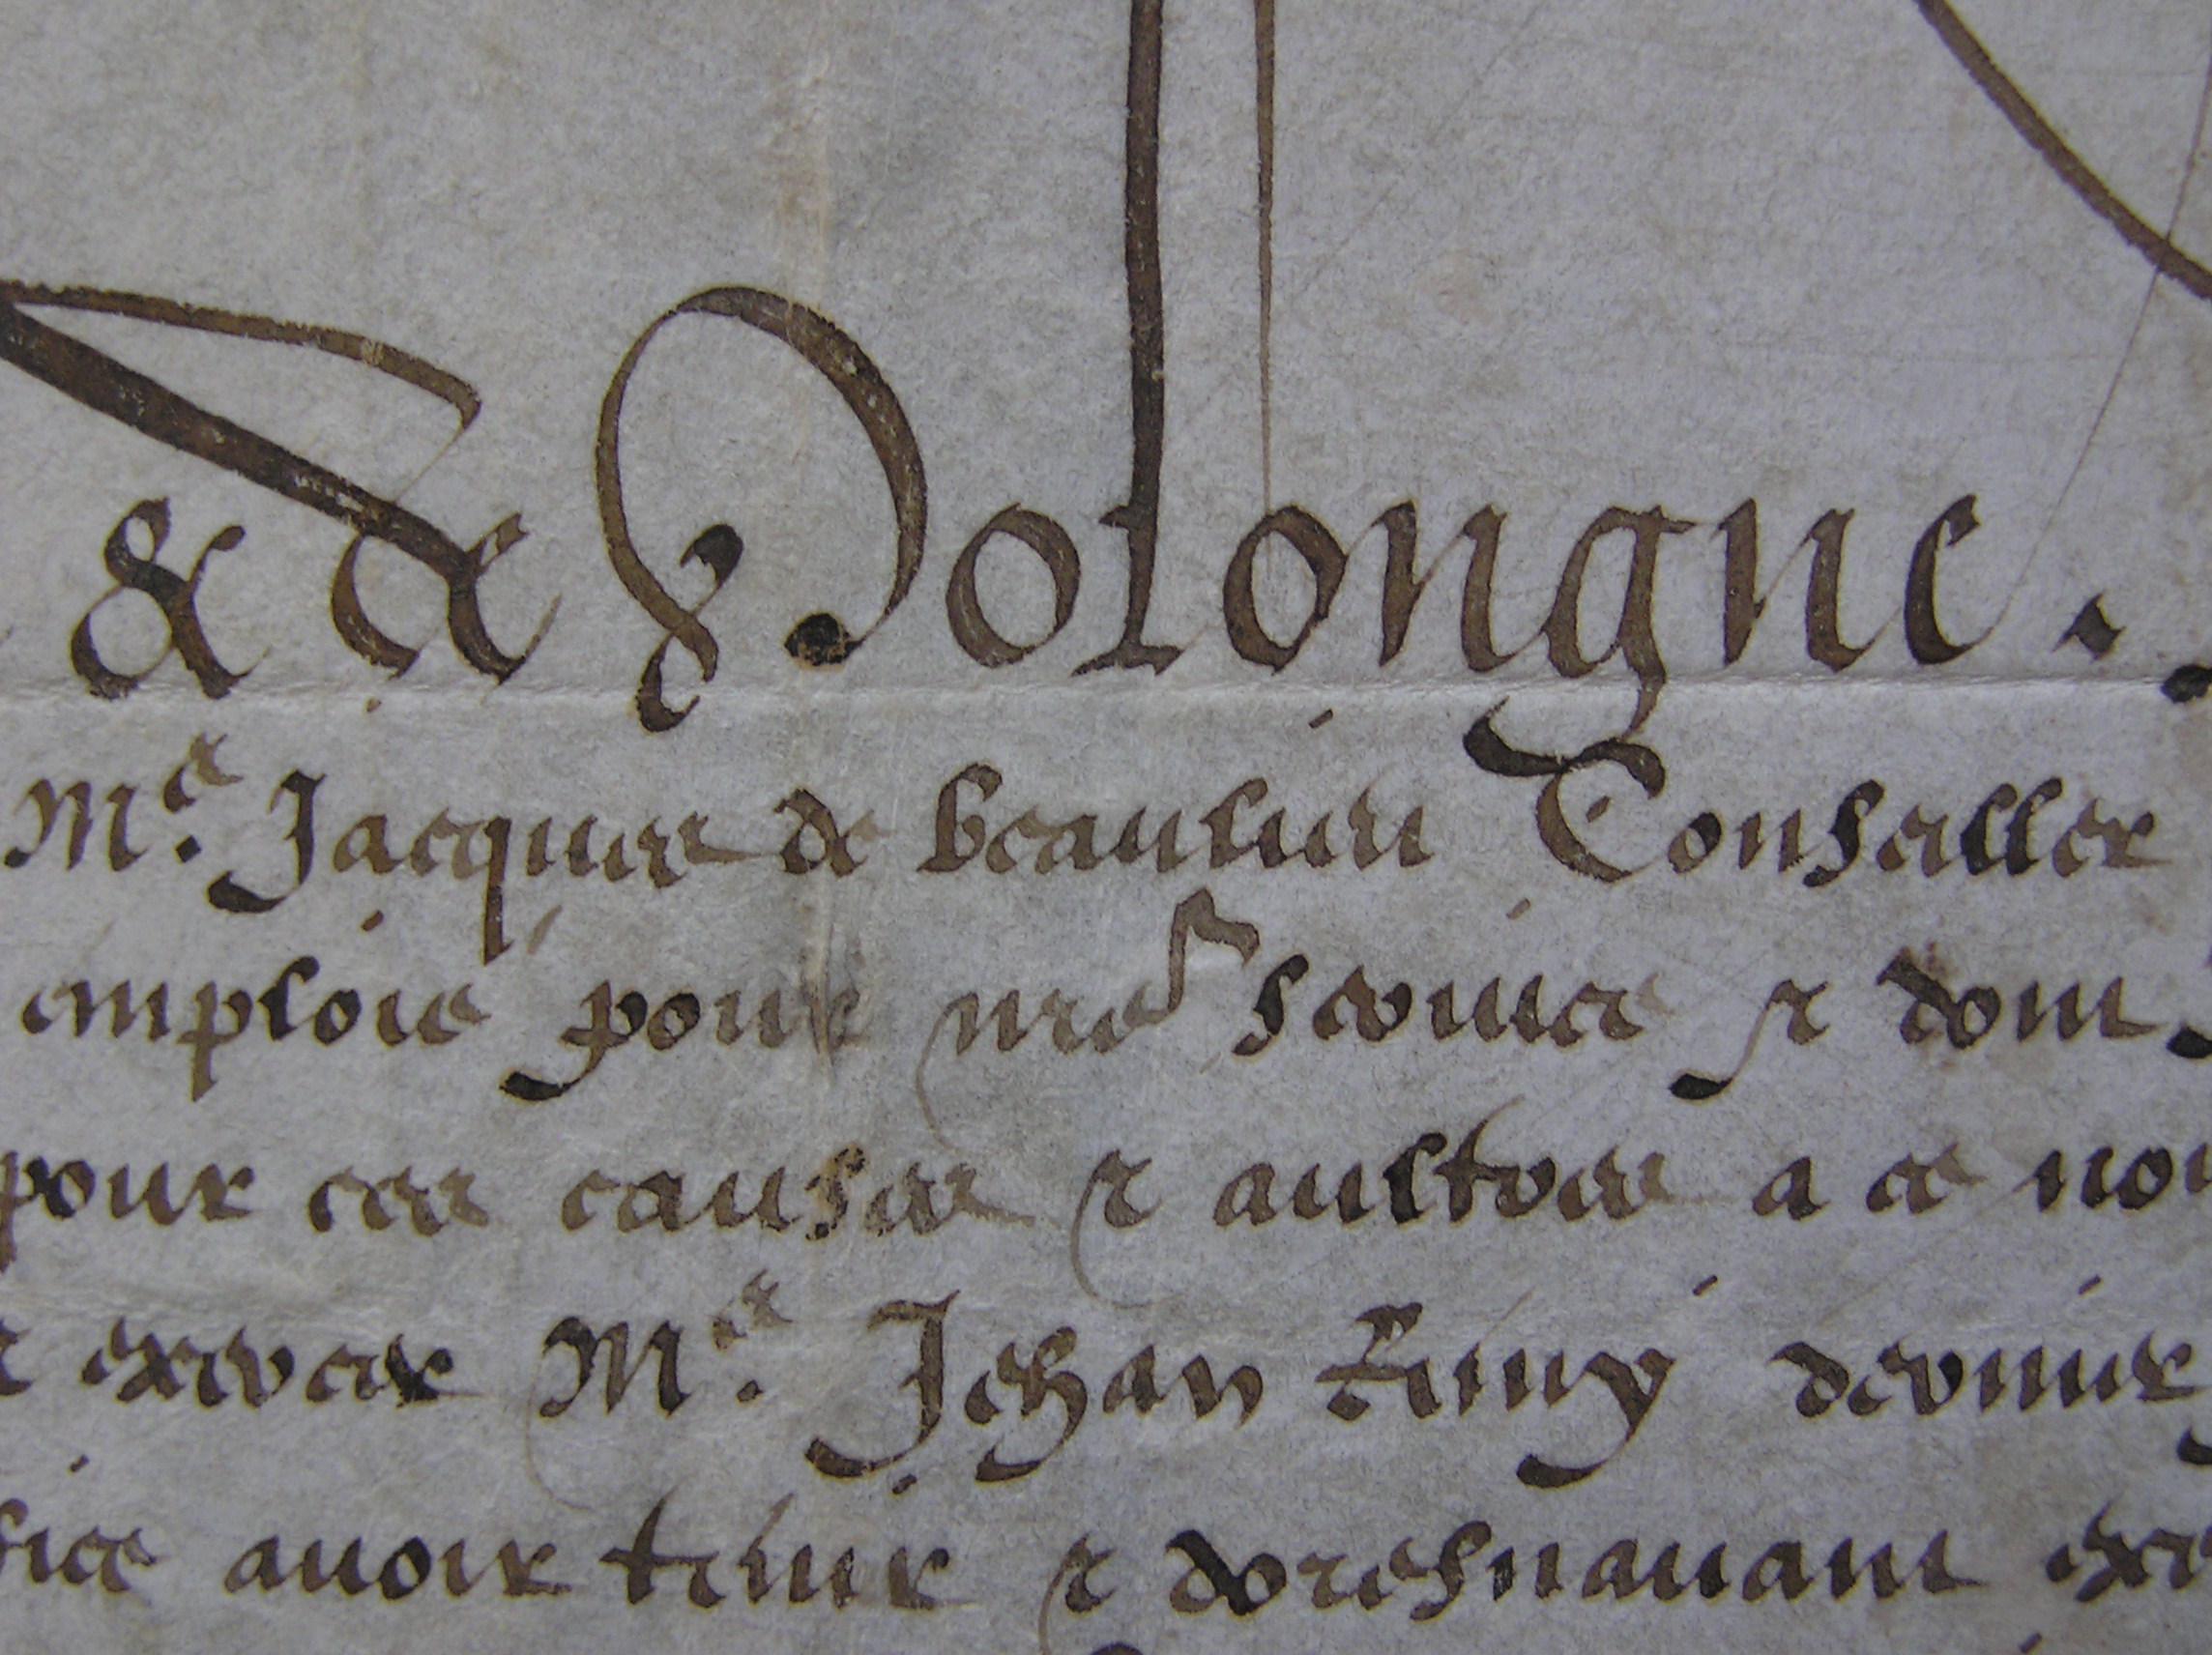 & de Polongne.
Me. Jacques de beaulieu Conseiller
emploie pour nre service et dont
pour ces causes et aultres a ce nou
exercer Me. Jehan Remy dernier
fice avoir tenir et doresnavant exe